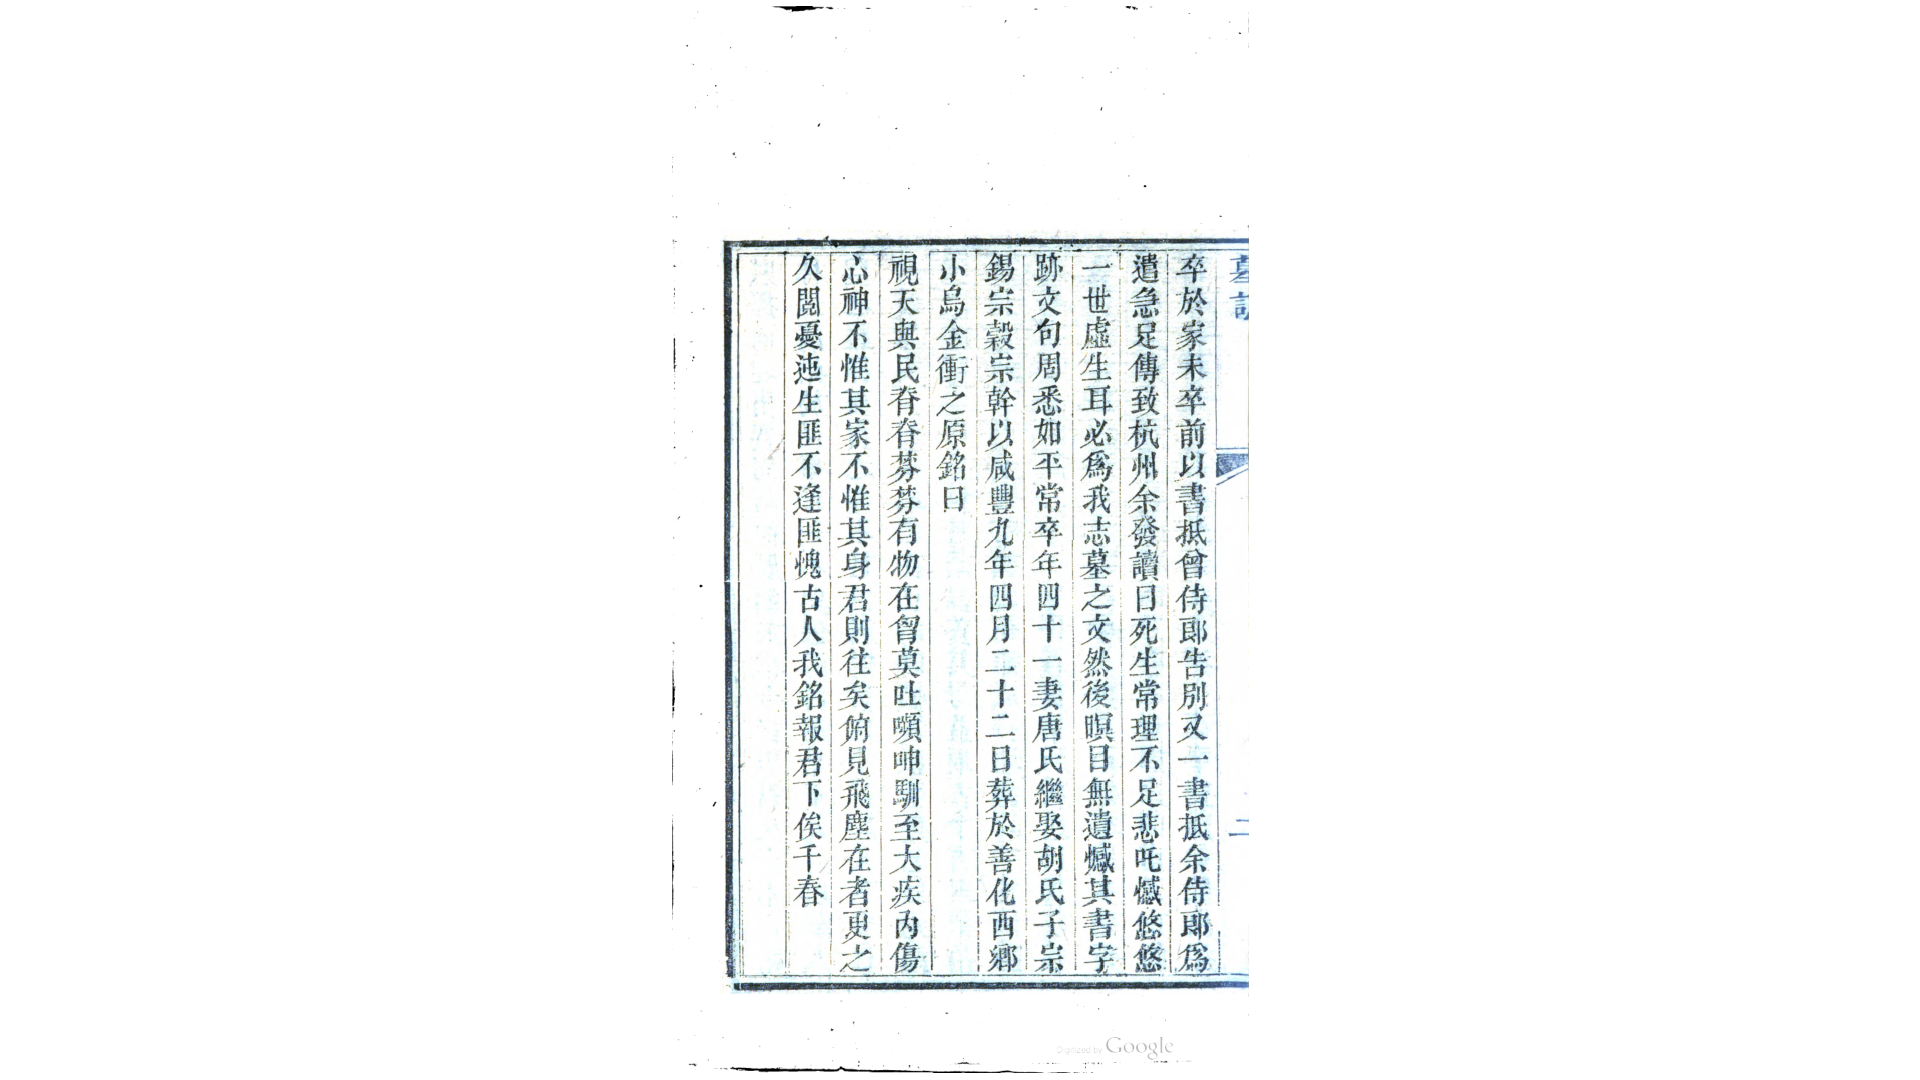 墓誌
二
卒於家未卒前以書抵曾侍郎告別又一書抵余侍郎爲
遣急足傳致杭州余發讀曰死生常理不足悲吒憾悠悠
一世虛生耳必爲我志墓之文然後瞑目無遺憾其書字
跡文句周悉如平常卒年四十一妻唐氏繼娶胡氏子宗
錫宗穀宗幹以咸豐九年四月二十二日葬於善化西鄉
小烏金衝之原銘曰
視天與民脊脊棼棼有物在胷莫吐嚬呻馴至大疾內傷
心神不惟其家不惟其身君則往矣俯見飛塵在者更之
久閲憂迍生匪不逢匪愧古人我銘報君下俟千春
Digitized by Google